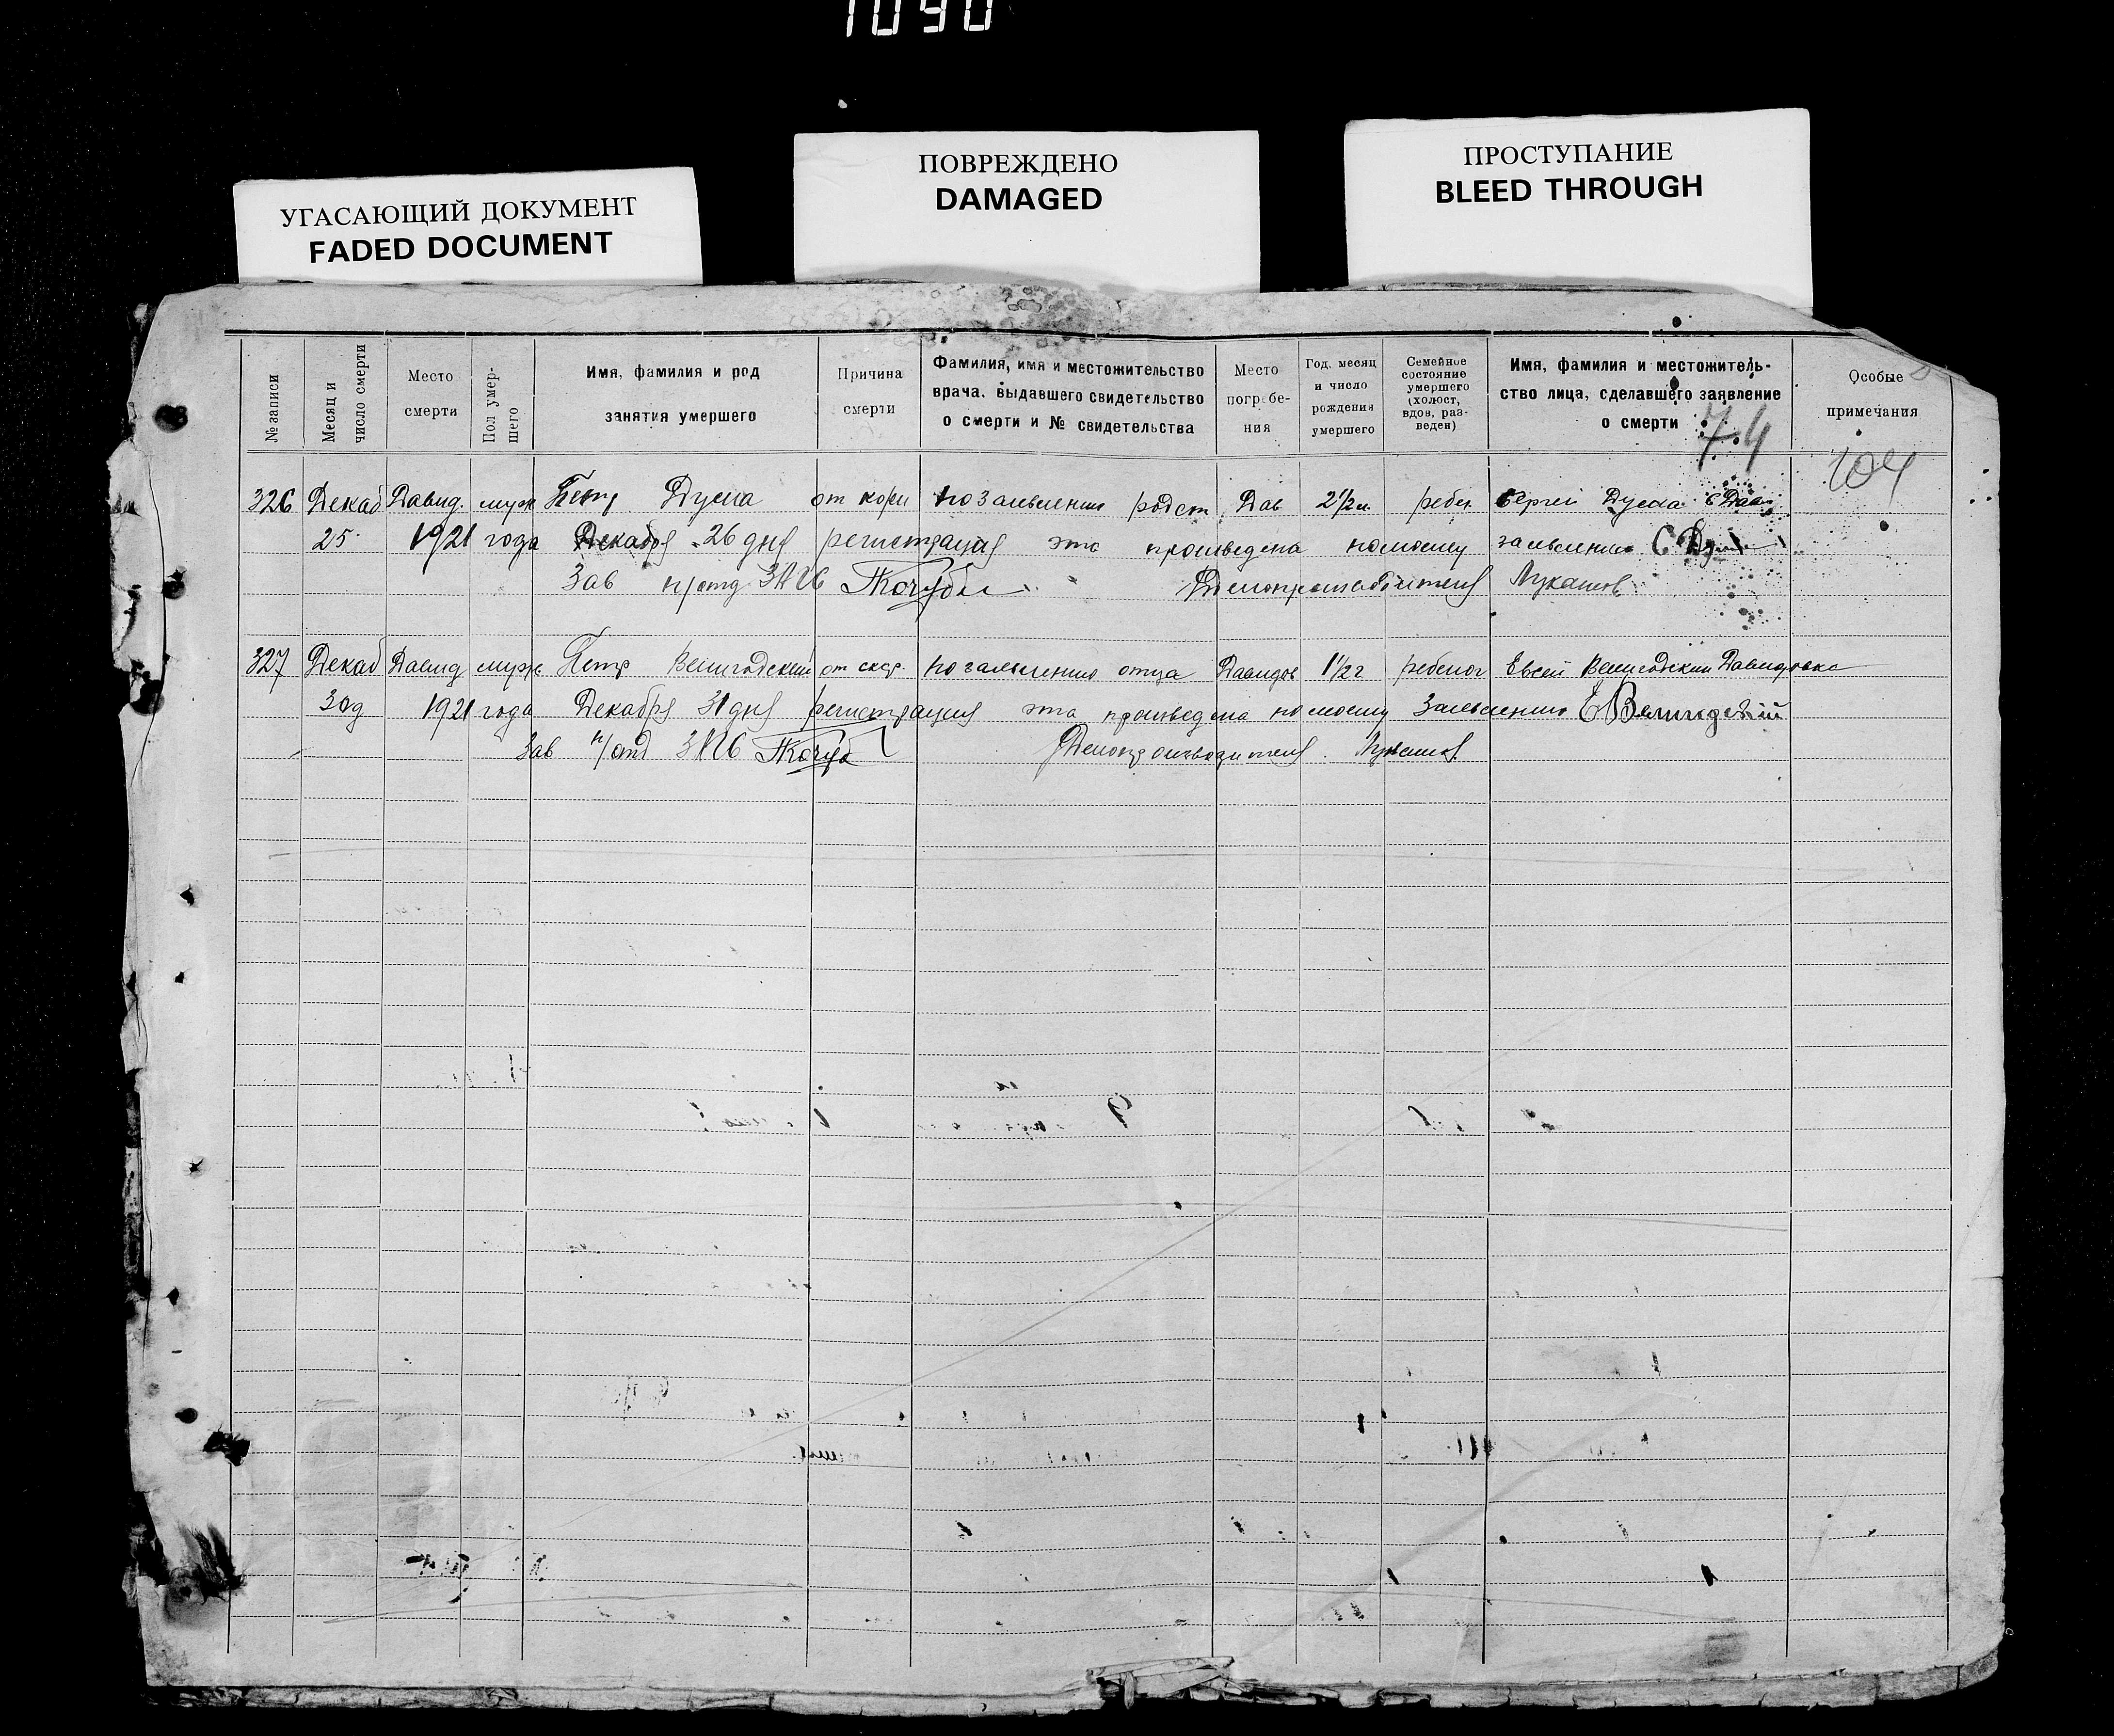 1090
УГАСАЮЩИЙ ДОКУМЕНТ
FADED DOCUMENT
ПОВРЕЖДЕНО
DAMAGED
ПРОСТУПАНИЕ
BLEED THROUGH
№ записи
Месяц и число смерти
Место смерти
Пол умер-
шего
Имя, фамилия и род
занятия умершего
Причина
смерти
Фамилия, имя и местожительство
врача, выдавшего свидетельство
о смерти и № свидетельства
Место
погребе-
ния
Год, месяц
и число
рождения
умершего
Семейное
состояние
умершего
(холост,
вдов, раз-
веден)
Имя, фамилия и местожитель-
ство лица, сделавшего заявление
о смерти
Особые
примечания
74
104
326 Декаб Давид. муж Петр Дуска от кори по заявлению родст Дав 2 1/2 м. ребен Сергей Дуска с Дав
25 1921 года Декабря 26 дня регистрация эта произведена по моему заявлению С Ду
Зав п/отд ЗАГС Кочубе Делопроизводитель Лукашов
327 Декаб Давид муж Петр Велигодский от скар. по заявлению отца Давидов 1 1/2 г ребенок Евсей Велигодский Давидовка
30 д 1921 года Декабря 31 дня регистрация эта произведена по моему Заявлению Е Велигодский
Зав п/отд ЗАГС Кочуб Делопроизводитель Лукашов